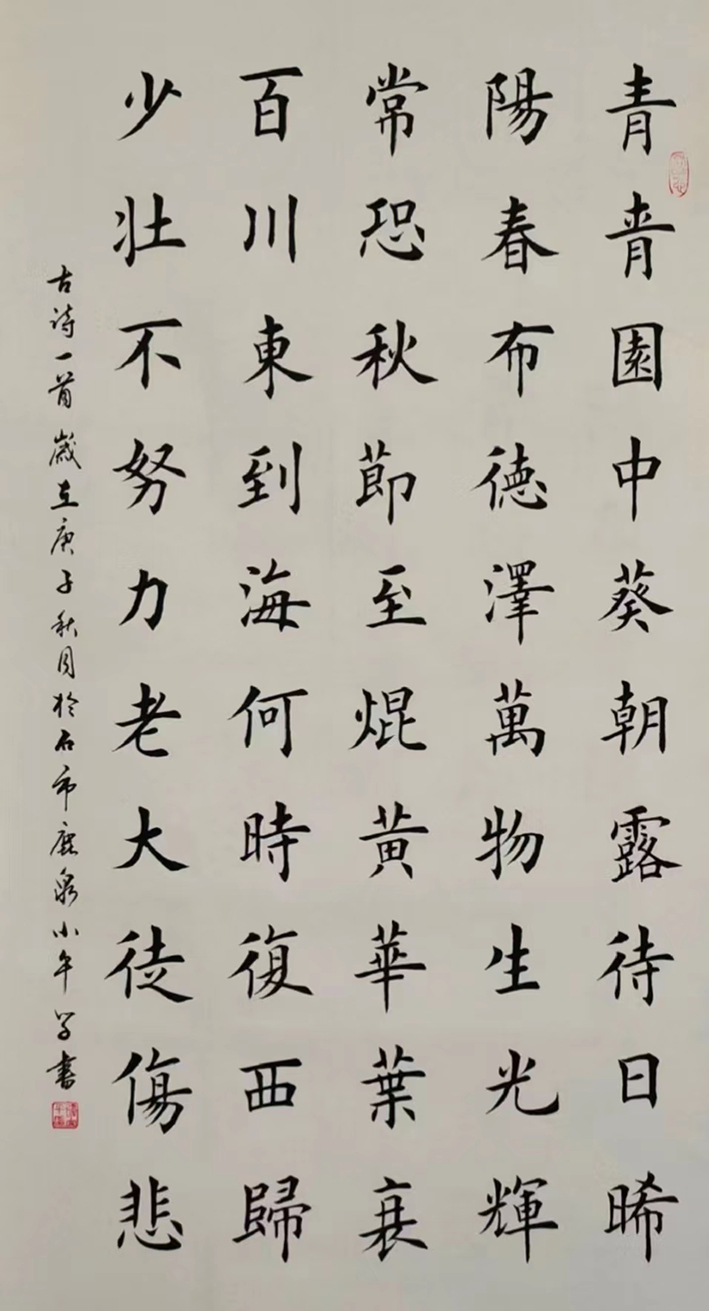 青青園中葵朝露待日晞
陽春布德澤萬物生光輝
常恐秋節至焜黃華葉衰
百川東到海何時復西歸
少壯不努力老大徒傷悲
古诗一首歲在庚子秋月於石市鹿泉小午学書